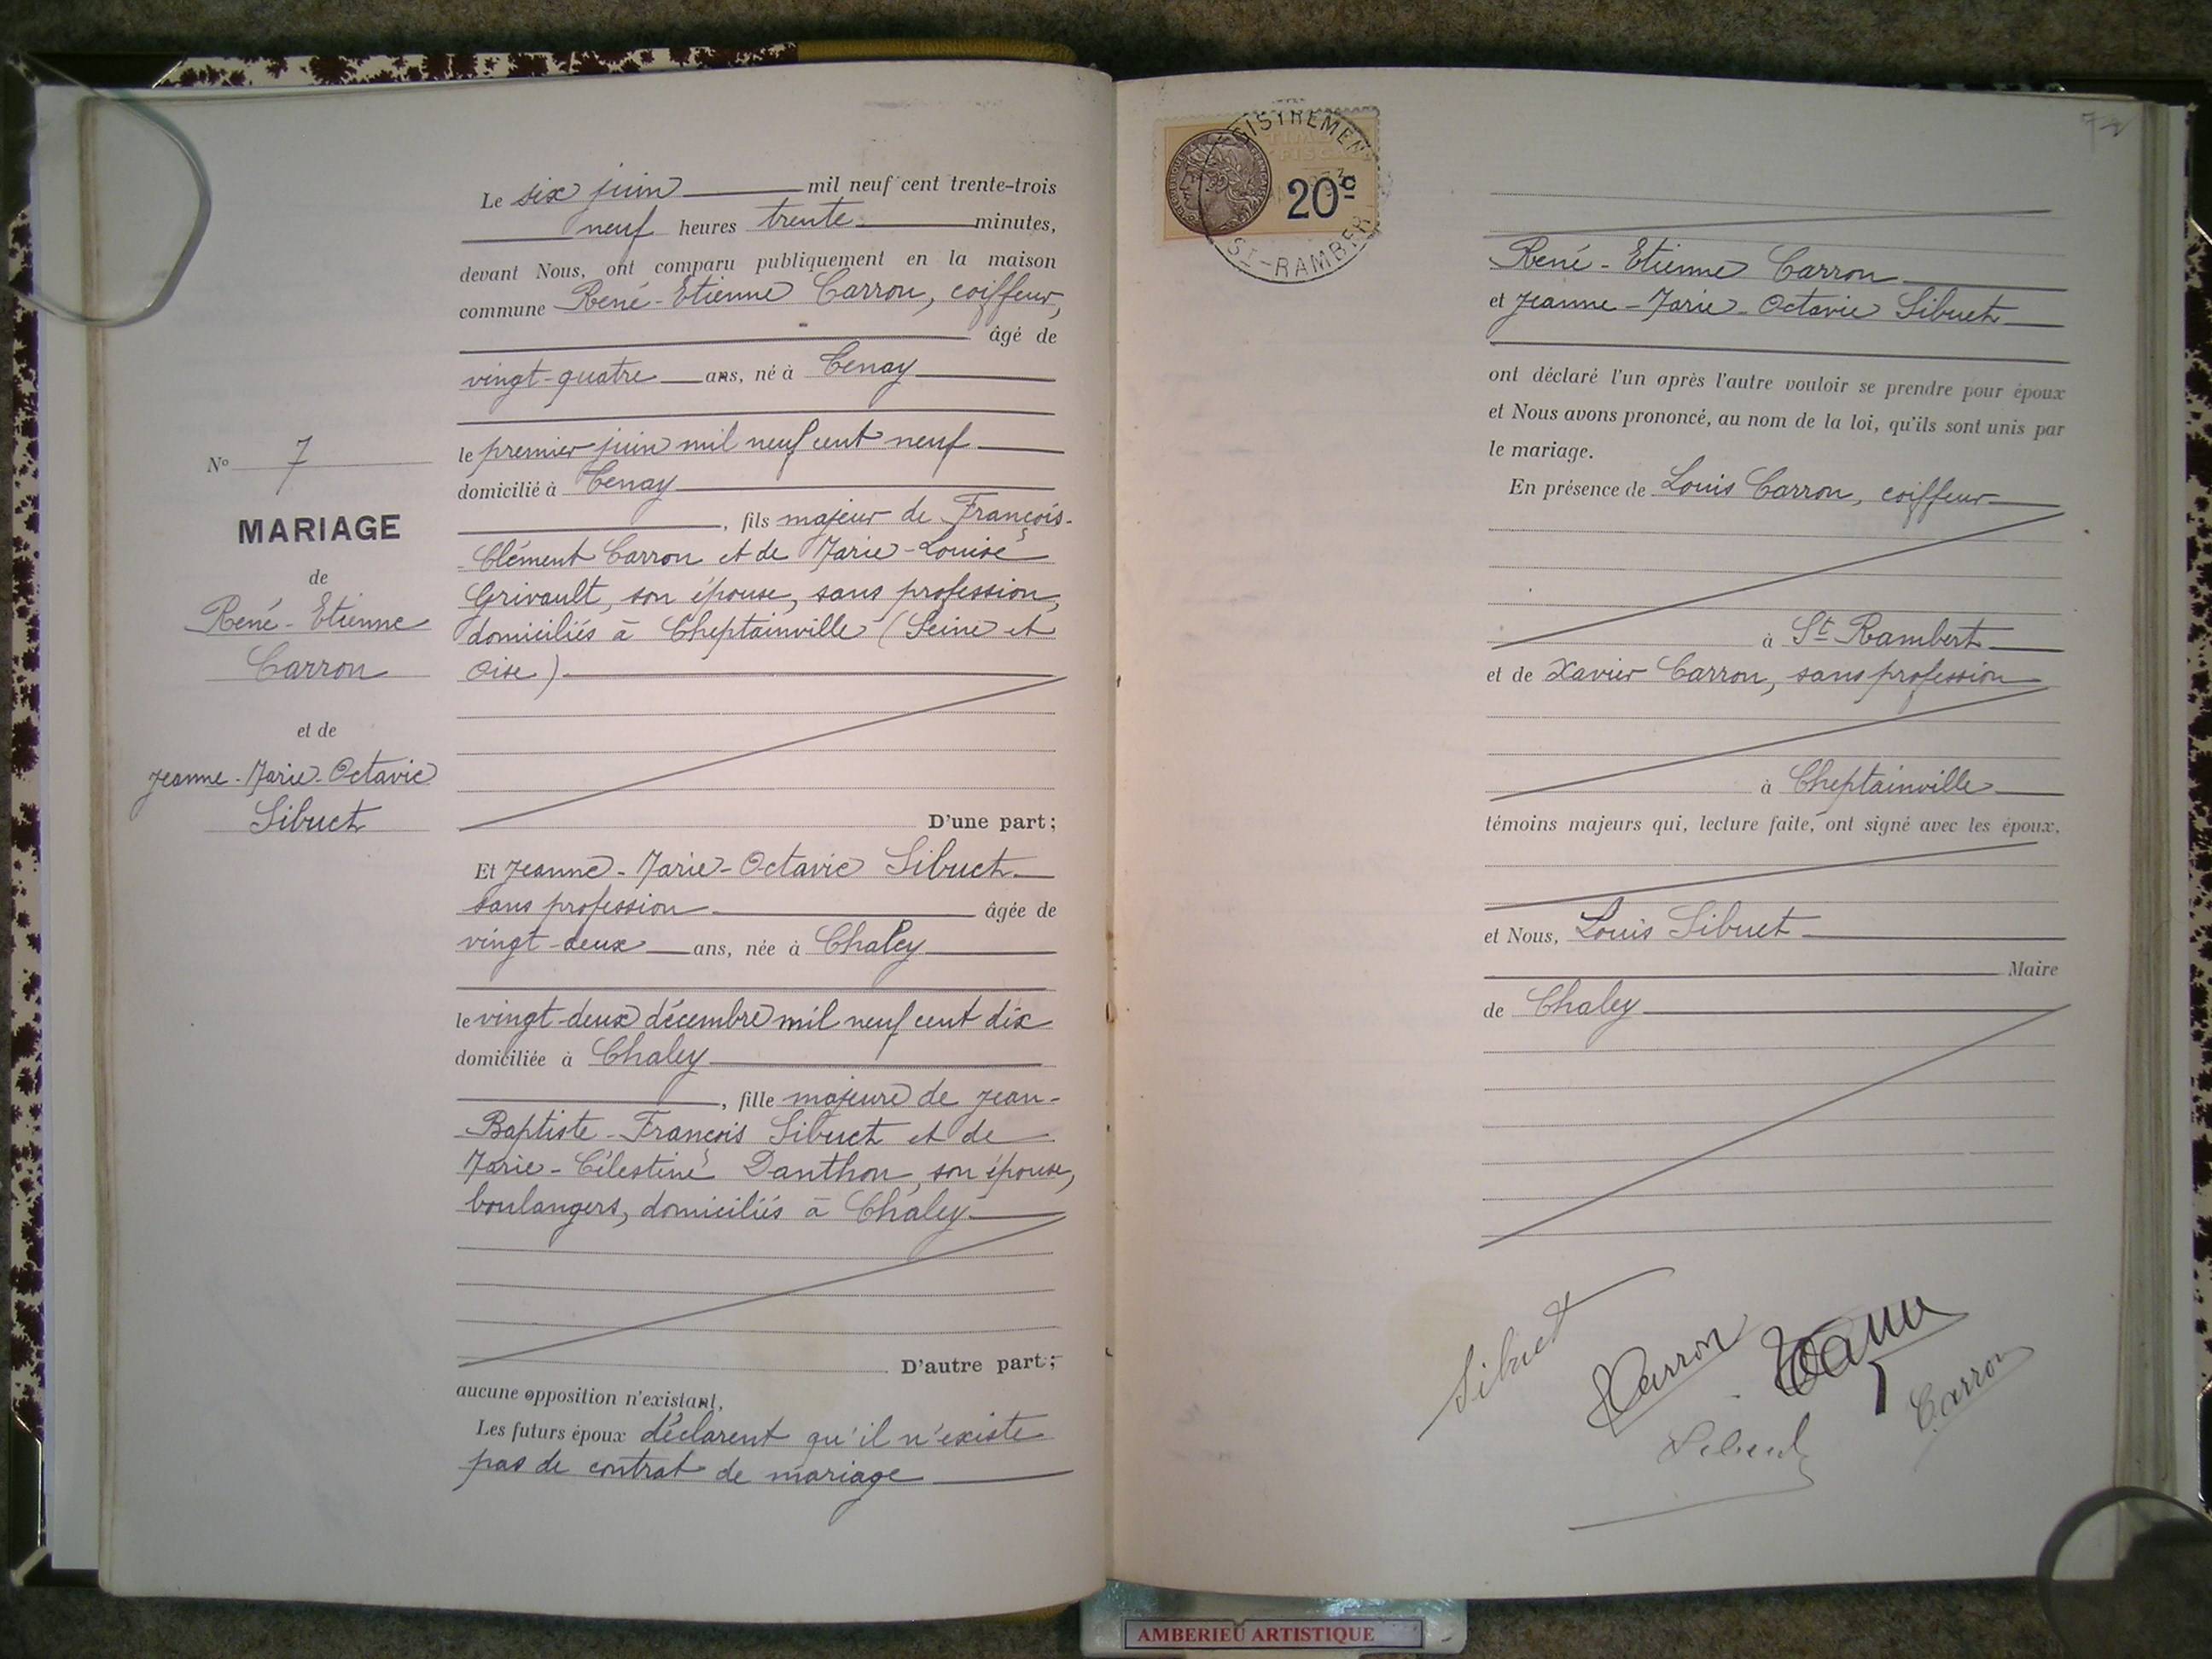 Le six juin mil neuf cent trente-trois
neuf heures trente minutes,
devant Nous, ont comparu publiquement en la maison
commune René-Etienne Carron, coiffeur,
âgé de
vingt-quatre ans, né à Tenay
le premier juin mil neuf cent neuf
domicilié à Tenay
, fils majeur de François-
-Clément Carron et de Marie-Louise
Grivault, son épouse, sans profession,
domiciliés à Cheptainville (Seine et
Oise)
D'une part;
Et Jeanne-Marie-Octavie Sibuet
sans profession âgée de
vingt-deux ans, née à Chaley
le vingt-deux décembre mil neuf cent dix
domiciliée à Chaley
, fille majeure de Jean-
Baptiste-François Sibuet et de
Marie-Célestine Danthon, son épouse,
boulangers, domiciliés à Chaley
D'autre part;
aucune opposition n'existant,
Les futurs époux déclarent qu'il n'existe
pas de contrat de mariage
No 7
MARIAGE
de
René-Etienne
Carron
et de
Jeanne-Marie-Octavie
Sibuet
20c
ST-RAMBERT
René-Etienne Carron
et Jeanne-Marie-Octavie Sibuet
ont déclaré l'un après l'autre vouloir se prendre pour époux
et Nous avons prononcé, au nom de la loi, qu'ils sont unis par
le mariage.
En présence de Louis Carron, coiffeur
à St Rambert
et de Xavier Carron, sans profession
à Cheptainville
témoins majeurs qui, lecture faite, ont signé avec les époux,
et Nous, Louis Sibuet
Maire
de Chaley
Sibuet
Carron
Carron
Sibuet
AMBERIEU ARTISTIQUE